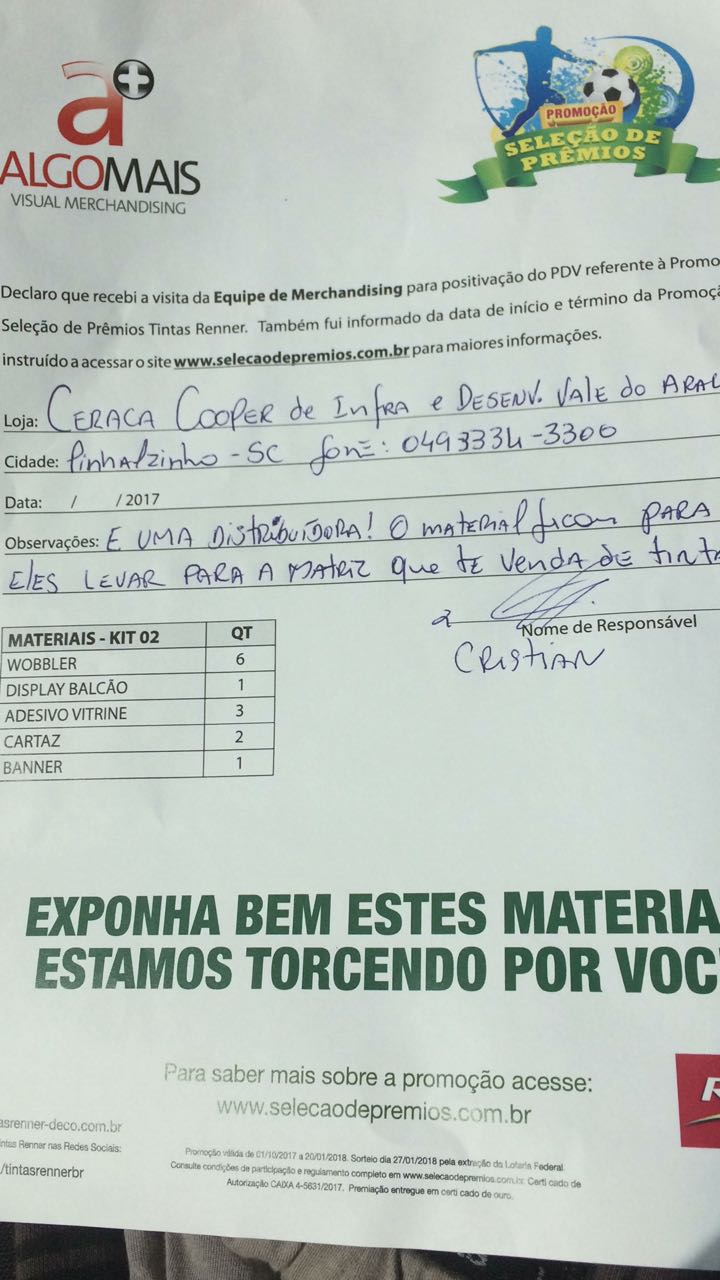 a+
ALGOMAIS
VISUAL MERCHANDISING
PROMOÇÃO
SELEÇÃO DE
PRÊMIOS
Declaro que recebi a visita da Equipe de Merchandising para positivação do PDV referente à Promo
Seleção de Prêmios Tintas Renner. Também fui informado da data de início e término da Promoçã
instruído a acessar o site www.selecaodepremios.com.br para maiores informações.
Loja: CERACA COOPER de INFRA e DESENV. VALE do ARA
Cidade: Pinhalzinho - SC fone: 049 3334-3300
Data: / / 2017
Observações: E UMA DISTRIBUIDORA! O MATERIAL ficou PARA
Eles LEVAR PARA A MATRIZ que te venda de tint
Nome de Responsável
CRISTIAN
MATERIAIS - KIT 02 QT
WOBBLER 6
DISPLAY BALCÃO 1
ADESIVO VITRINE 3
CARTAZ 2
BANNER 1
EXPONHA BEM ESTES MATERIA
ESTAMOS TORCENDO POR VOC
Para saber mais sobre a promoção acesse:
www.selecaodepremios.com.br
R
asrenner-deco.com.br
intas Renner nas Redes Sociais:
/tintasrennerbr
Promoção válida de 01/10/2017 a 20/01/2018. Sorteio dia 27/01/2018 pela extração da Loteria Federal.
Consulte condições de participação e regulamento completo em www.selecaodepremios.com.br. Certi cado de
Autorização CAIXA 4-5631/2017. Premiação entregue em certi cado de ouro.